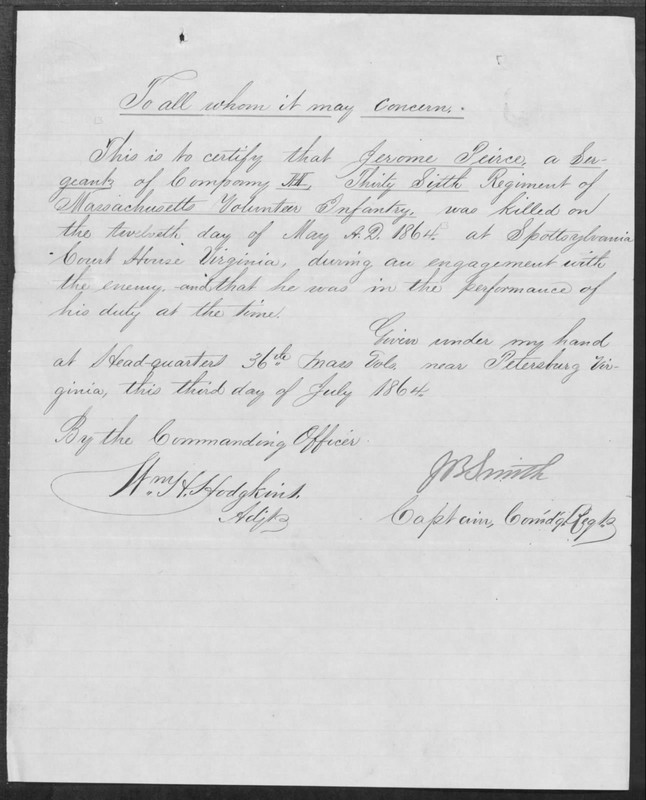 To all whom it may concern.
This is to certify that Jerome Peirce, a Ser-
geant, of Company H, Thirty Sixth Regiment of
Massachusetts Volunteer Infantry, was killed on
the twelveth day of May A.D. 1864. at Spottsylvania
Court House Virginia, during an engagement with
the enemy and that he was in the performance of
his duty at the time.
Given under my hand
at Head-quarters 36th Mass Vols. near Petersburg Vir-
ginia, this third day of July 1864.
By the Commanding Officer
Wm H. Hodgkins.
Adjt
J B Smith
Captain, Com'd'g Regt.